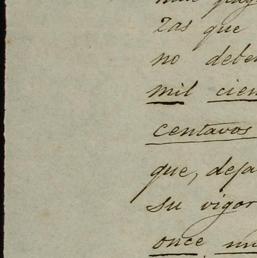 zas que
no debe
mil cien
centavos
que, deja
su vigor
once mi